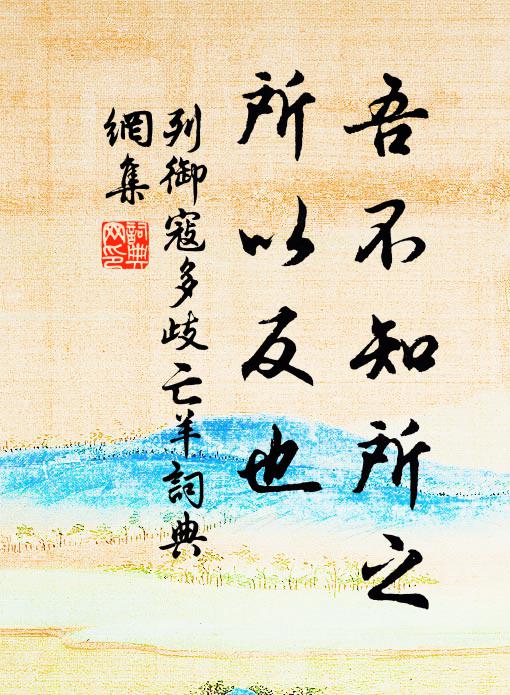 吾不知所之
所以反也
列御寇多歧亡羊詞典
網集
詞典
网印